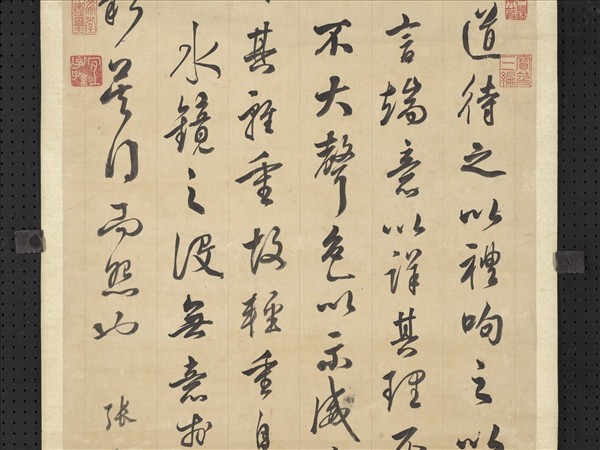 道待之以禮呴之以
言端意以詳其理不
不大聲色以示威
其重故輕重自
水鏡之設無意於
而然也
張